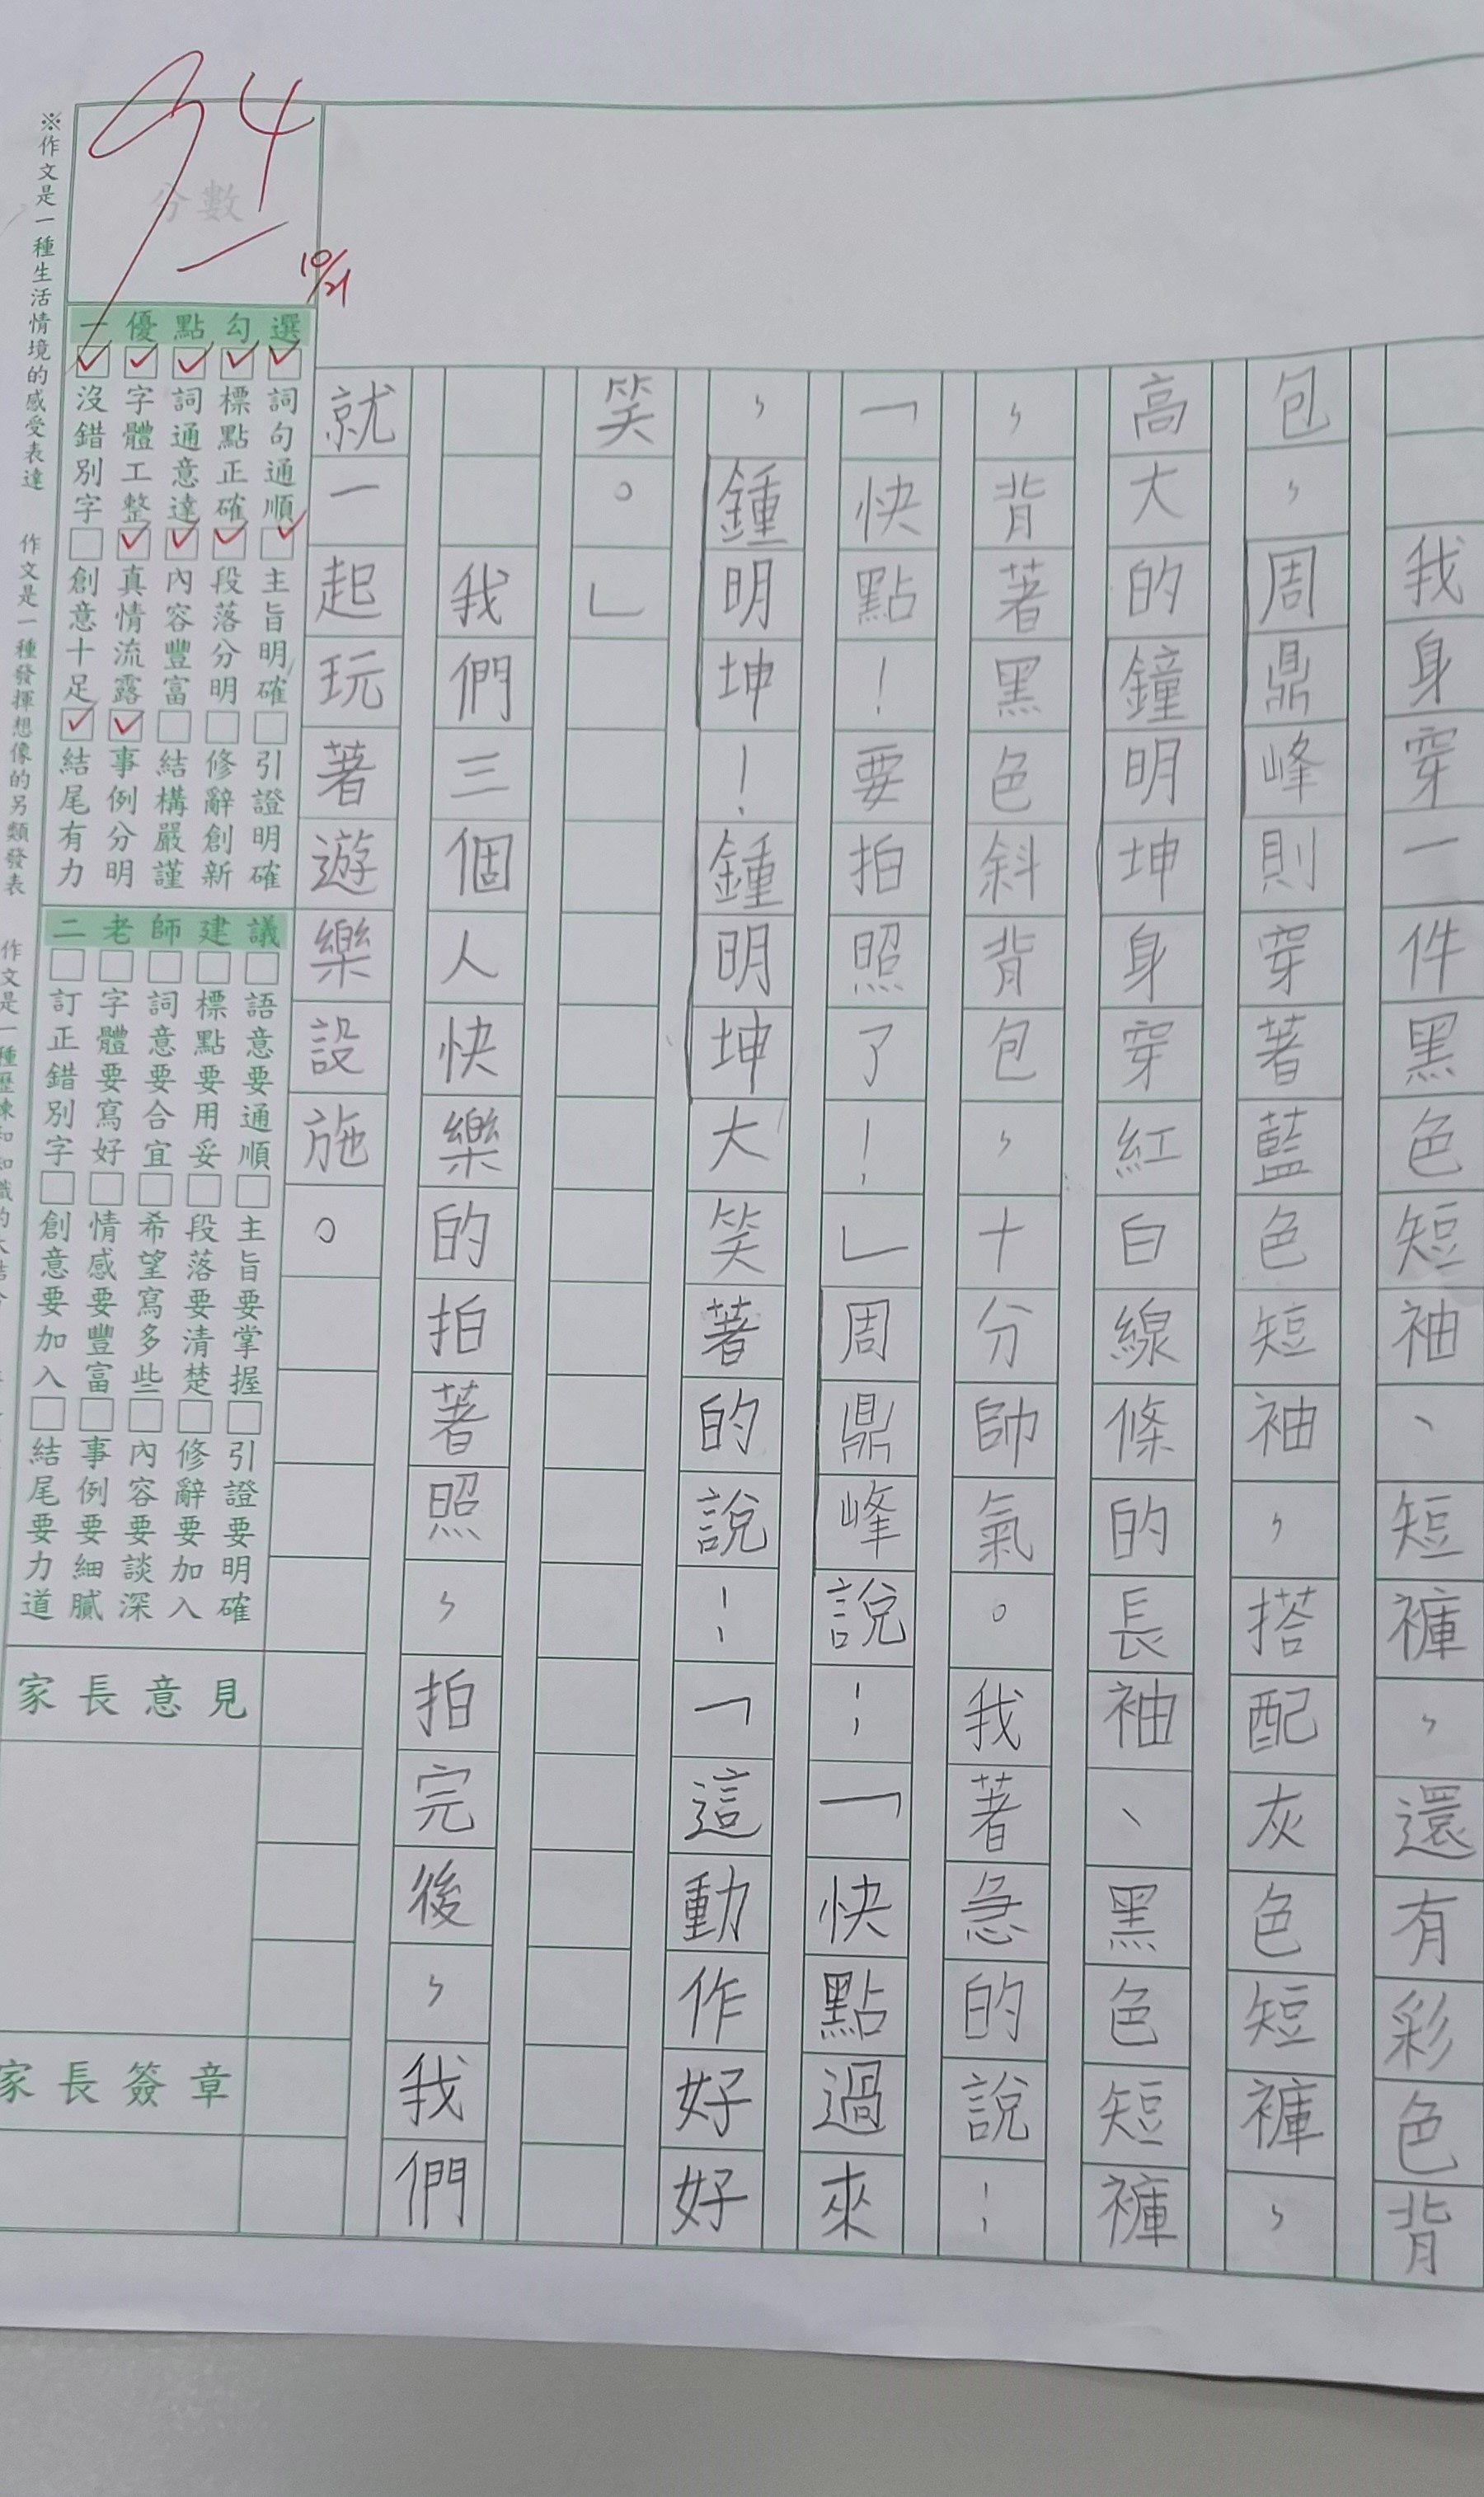 我身穿一件黑色短袖、短褲，還有彩色背
包，周鼎峰則穿著藍色短袖，搭配灰色短褲，
高大的鐘明坤身穿紅白線條的長袖、黑色短褲
，背著黑色斜背包，十分帥氣。我著急的說：
「快點！要拍照了！」周鼎峰說：「快點過來
，鍾明坤！鍾明坤大笑著的說：「這動作好好
笑。」
我們三個人快樂的拍著照，拍完後，我們
就一起玩著遊樂設施。
94
分數
10/21
一優點勾選
詞句通順 主旨明確 引證明確
標點正確 段落分明 修辭創新
詞通意達 內容豐富 結構嚴謹
字體工整 真情流露 事例分明
沒錯別字 創意十足 結尾有力
二老師建議
語意要通順 主旨要掌握 引證要明確
標點要用妥 段落要清楚 修辭要加入
詞意要合宜 希望寫多些 內容要談深
字體要寫好 情感要豐富 事例要細膩
訂正錯別字 創意要加入 結尾要力道
家長意見
家長簽章
※作文是一種生活情境的感受表達 作文是一種發揮想像的另類發表 作文是一種歷練和知識的